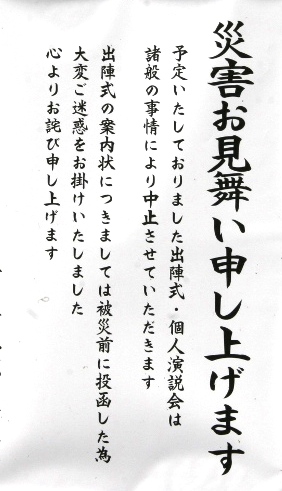 災害お見舞い申し上げます
予定いたしておりました出陣式・個人演説会は
諸般の事情により中止させていただきます
出陣式の案内状につきましては被災前に投函した為
大変ご迷惑をお掛けいたしました
心よりお詫び申し上げます